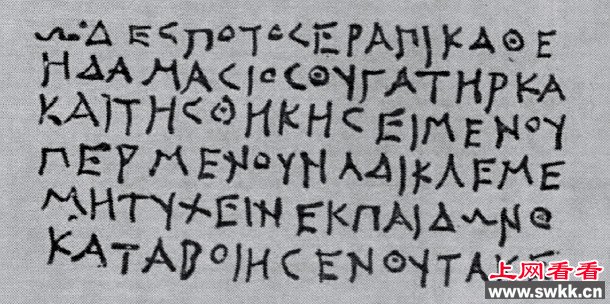 ΩΔΕϹΠΟΤΟϹΕΡΑΠΙΚΑΘΕ
ΗΔΑΜΑϹΙΟϹΘΥΓΑΤΗΡΚΑ
ΚΑΙΤΗϹΘΗΚΗϹΕΙΜΕΝΟΥ
ΠΕΡΜΕΝΟΥΝΑΔΙΚΑΕΜΕ
ΜΗΤΥΧΕΙΝΕΚΠΑΙΔΩΝΘ
ΚΑΤΑΒΟΙΗϹΕΝΟΥΤΑΚΕ
上网看看
www.swkk.cn